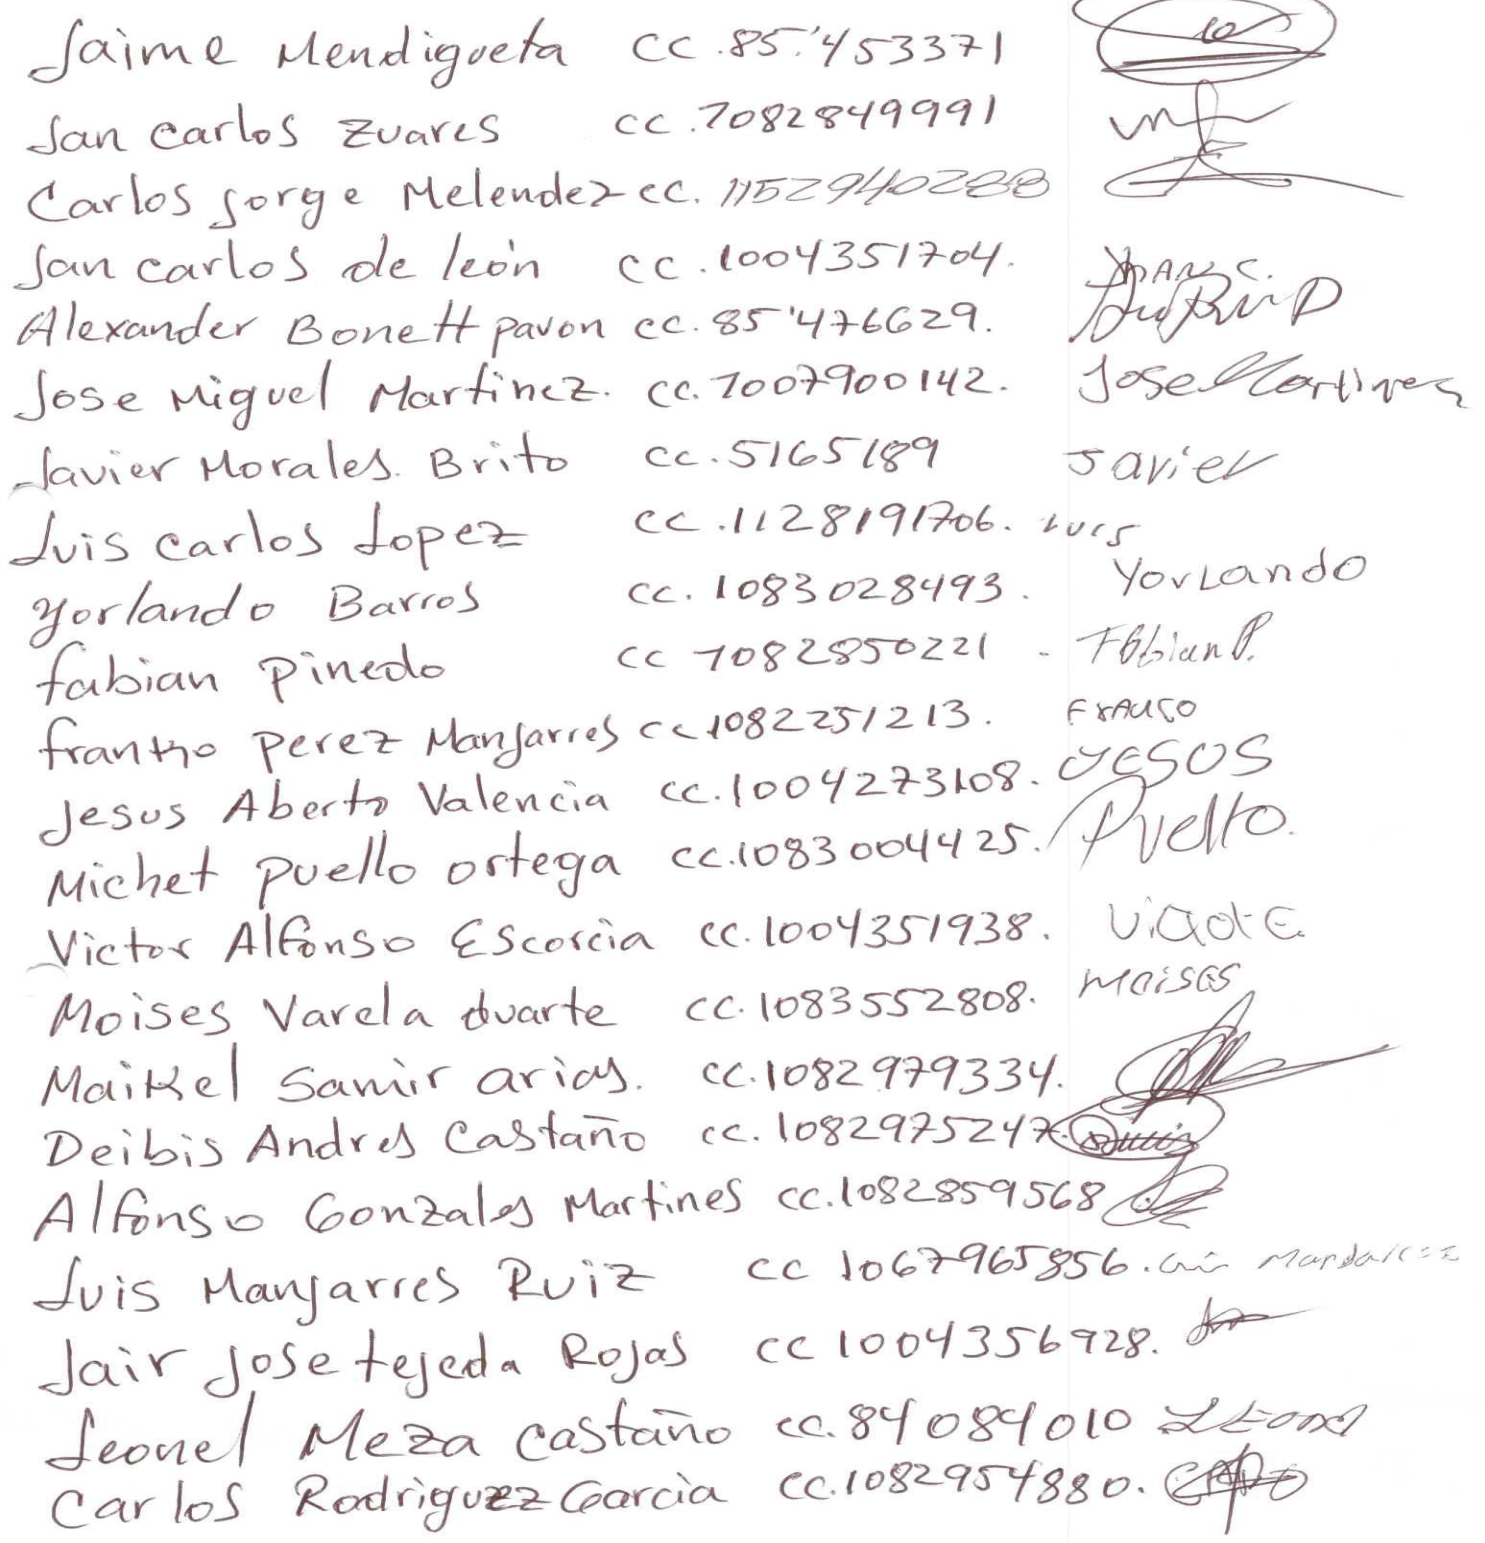 Jaime Mendigueta cc.85.'453371
Jan carlos Zuares cc.7082849991
Carlos Jorge Melendez cc. 1152940288
Jan carlos de león cc.1004351704. JUAN C.
Alexander Bonett pavon cc. 85'476629.
Jose Miguel Martinez. cc. 1007900142. Jose Martinez
Javier Morales. Brito cc.5165189 Javier
Luis carlos Lopez cc.1128191706. Luis
Yorlando Barros cc. 1083028493. YorLando
fabian Pinedo cc 7082850221 - Fabian P.
frantho perez Manjarres cc1082251213.
Jesus Aberto Valencia cc.1004273108. JESOS
Michet puello ortega cc.1083004425. Puello.
Victor Alfonso Escorcia cc.1004351938.
Moises Varela duarte cc.1083552808. Moises
Maikel Samir arias. cc.1082979334.
Deibis Andres Castaño cc. 1082975247.
Alfonso Gonzales Martines cc.1082859568
Luis Manjarres Ruiz cc 1067965856.
Jair Jose tejeda Rojas cc 1004356928.
Leonel Meza castaño cc.84084010 LEonel
Carlos Rodriguez Garcia cc.1082954880.